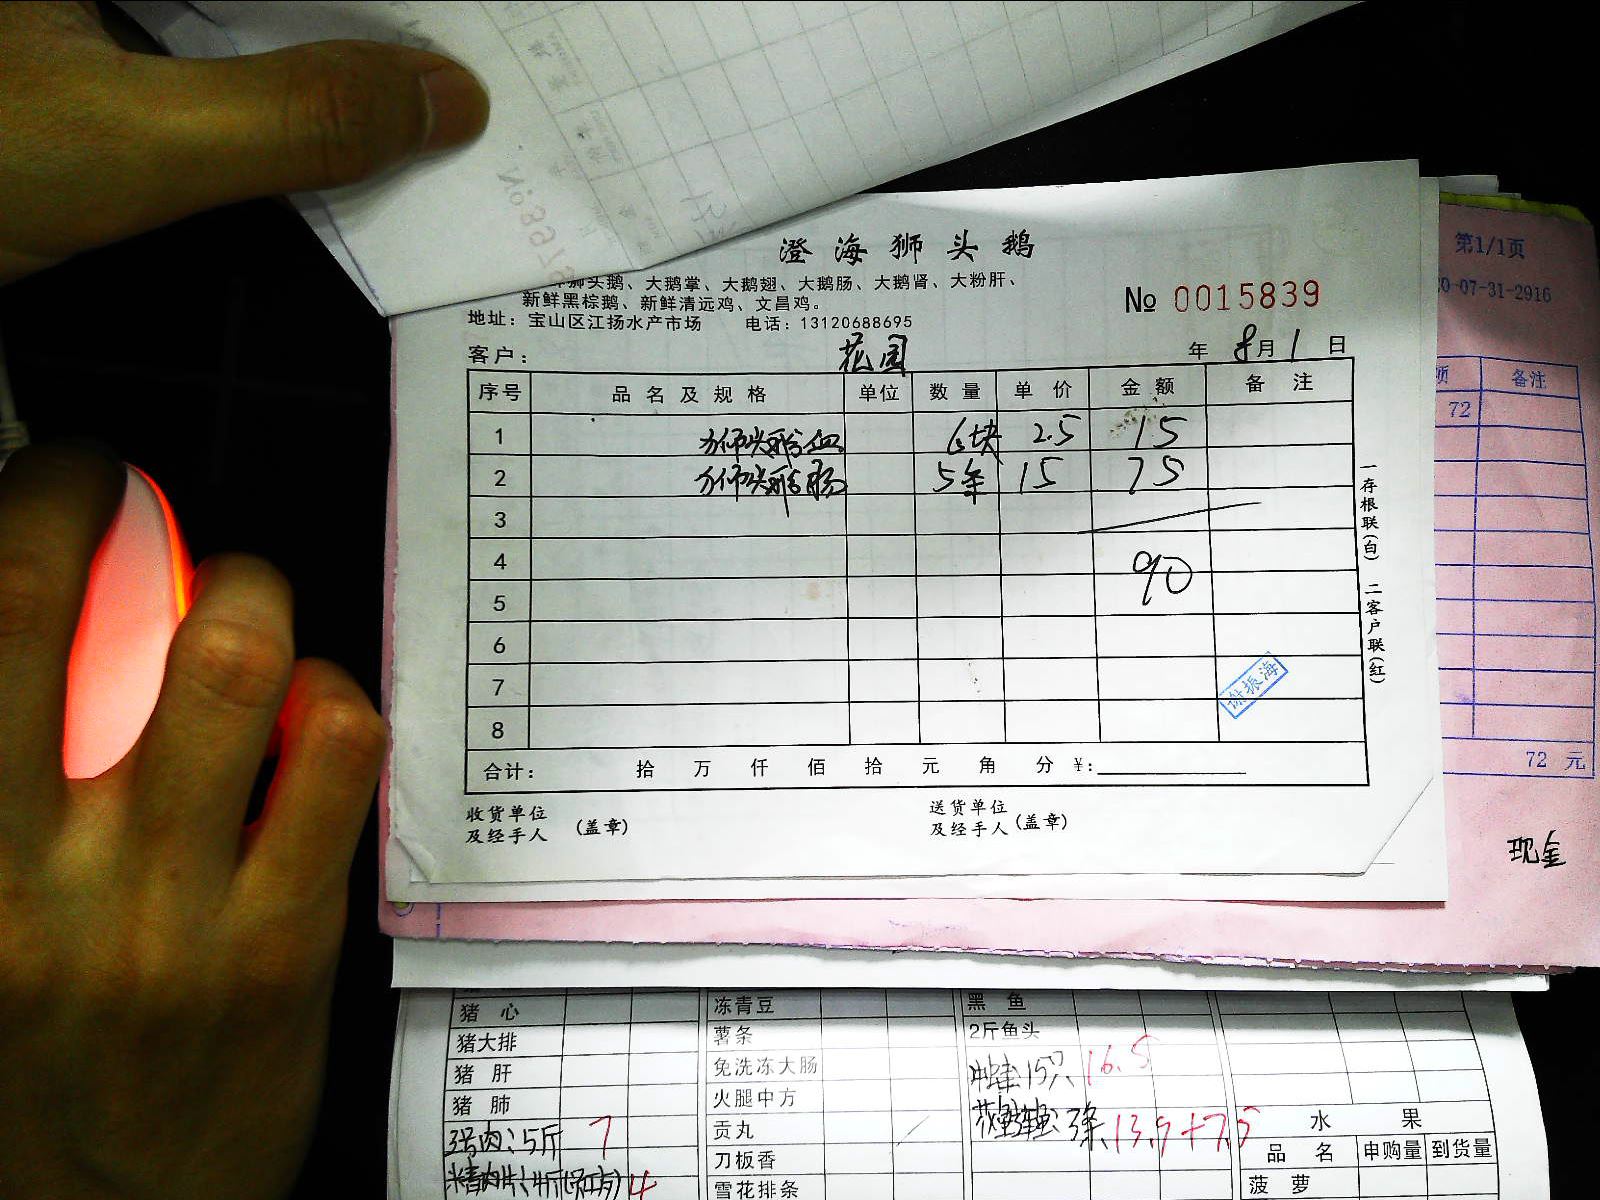 澄海狮头鹅
狮头鹅、大鹅掌、大鹅翅、大鹅肠、大鹅肾、大粉肝、
新鲜黑棕鹅、新鲜清远鸡、文昌鸡。
地址：宝山区江扬水产市场 电话：13120688695
№ 0015839
客户： 花园 年 8月1日
序号 品名及规格 单位 数量 单价 金额 备注
1 狮头鹅血 6块 2.5 15
2 狮头鹅肠 5条 15 75
3
4 90
5
6
7
8
谢振海
合计： 拾 万 仟 佰 拾 元 角 分 ¥:
收货单位
及经手人 (盖章)
送货单位
及经手人 (盖章)
一存根联(白) 二客户联(红)
第1/1页
0-07-31-2916
备注
72
72 元
现金
猪心 冻青豆 黑鱼
猪大排 薯条 2斤鱼头
猪肝 免洗冻大肠 15只 16.5
猪肺 火腿中方 3条 13.9+7.5
5斤 7 贡丸 水果
4 刀板香 品名 申购量 到货量
雪花排条 菠萝